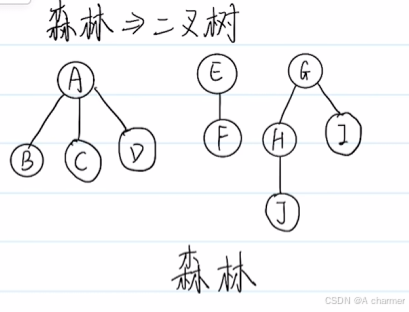 森林⇒二叉树
A E G
B C D F H I
J
森林
CSDN @A charmer